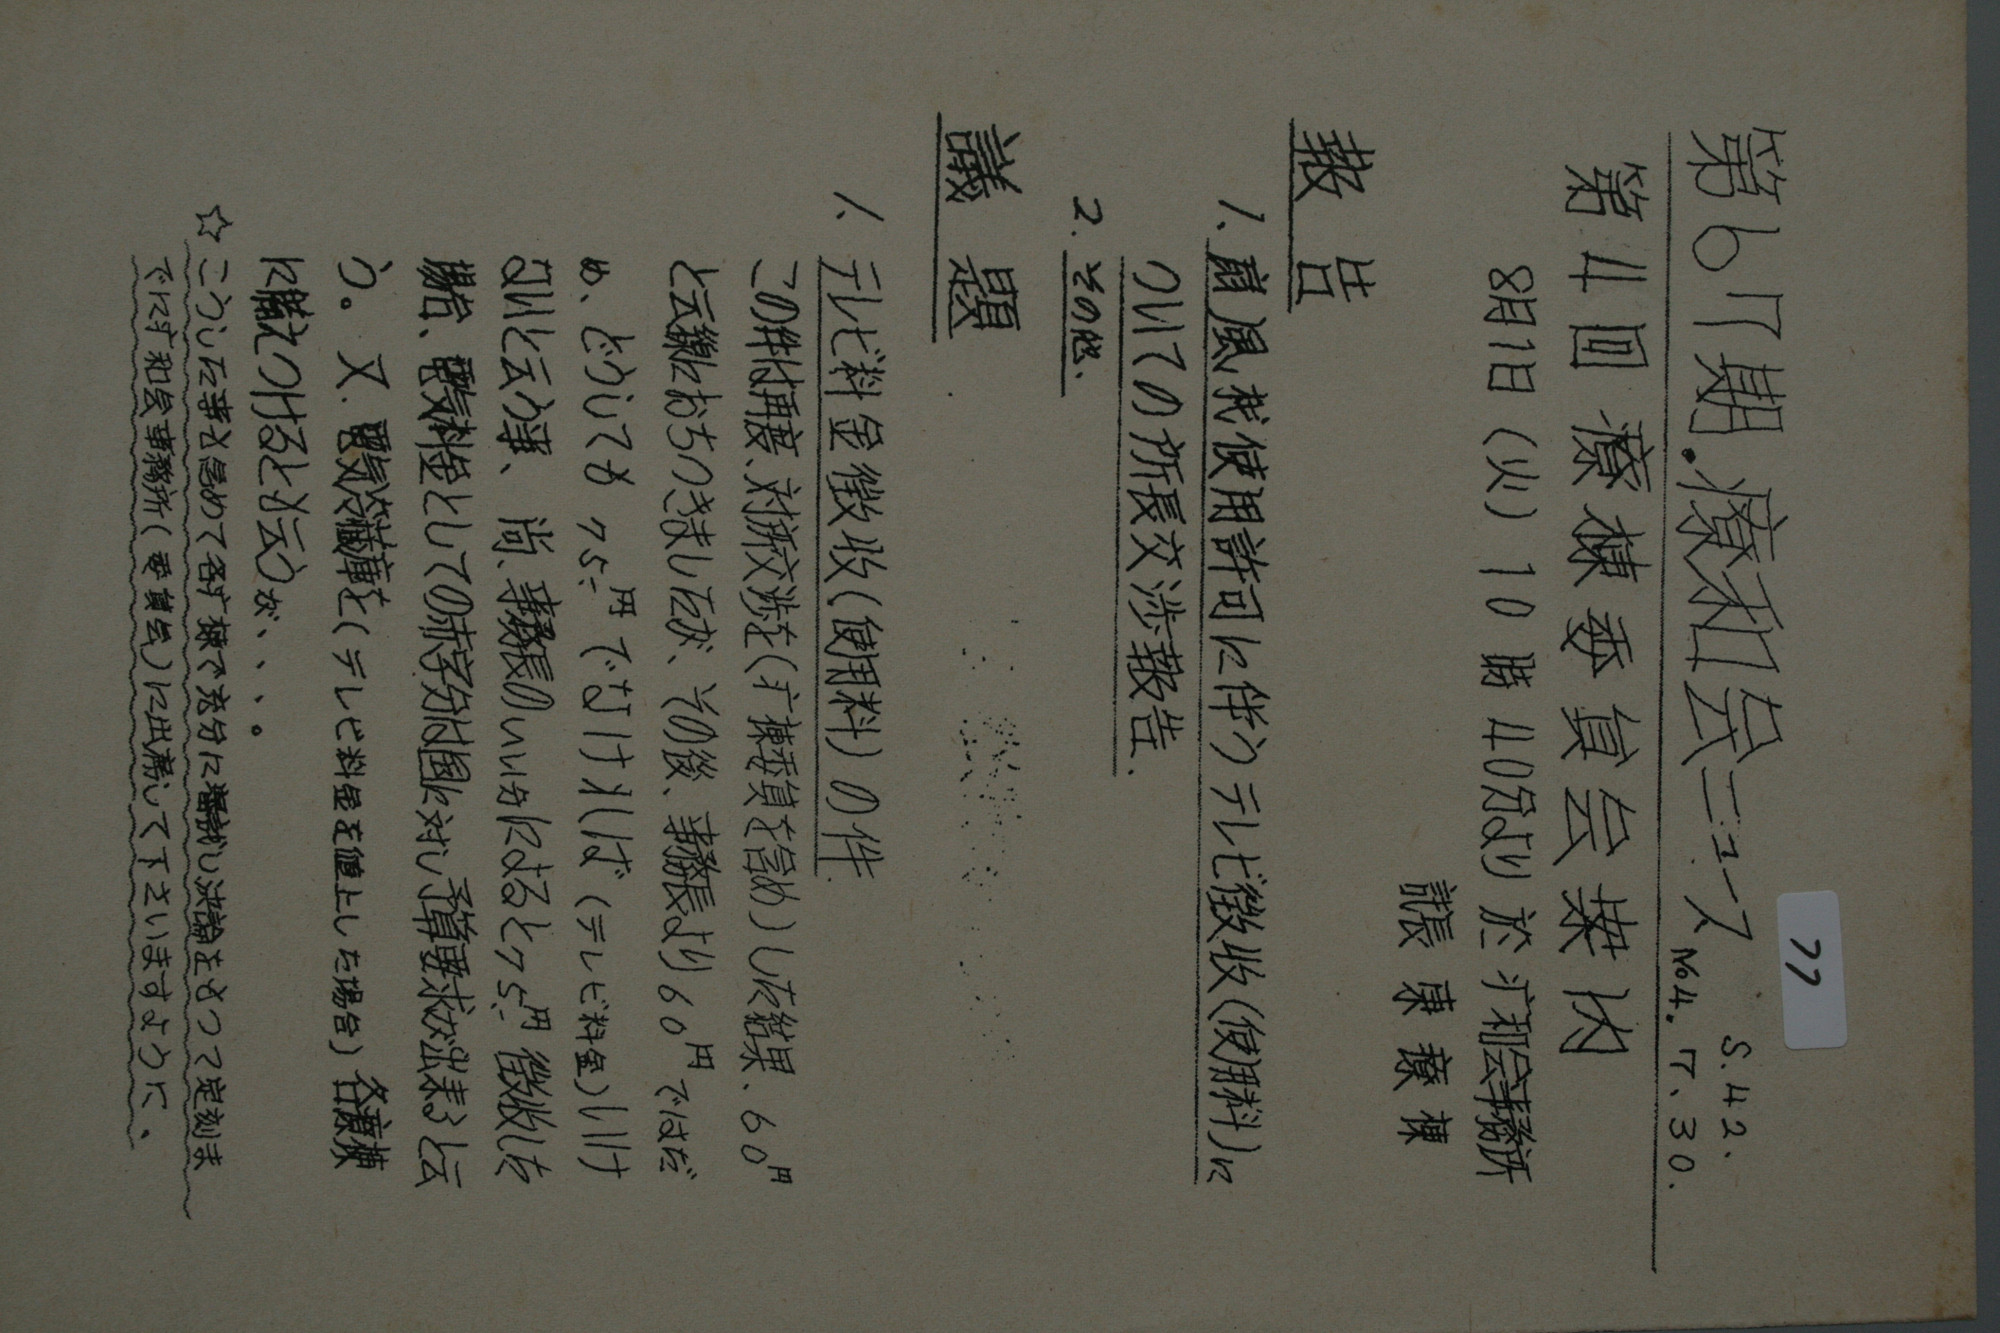 77
第67期.療和会ニュース No4. S.42.7.30.
第4回療棟委員会案内
8月1日(火)10時40分より 於 疒和会事務所
議長 東療棟
報告
1、扇風機使用許可に伴うテレビ徴収(使用料)に
ついての所長交渉報告.
2.その他.
議題
1、テレビ料金徴収(使用料)の件
この件は再度、対所交渉を(疒棟委員を含め)した結果、60円
と云線におちつきましたが、その後、事務長より60円ではだ
め、どうしても75.-円でなければ(テレビ料金)いけ
ないと云う事、尚、事務長のいい分によると75.-円徴収した
場合、電気料金としての赤字分は国に対し予算要求が出来ると云
う。又、電気冷蔵庫を(テレビ料金を値上した場合)各療棟
に備えつけるとも云うが、、、。
☆こうした事を含めて各疒棟で充分に審議し決論をもって定刻ま
でに疒和会事務所(委員会)に出席して下さいますように、